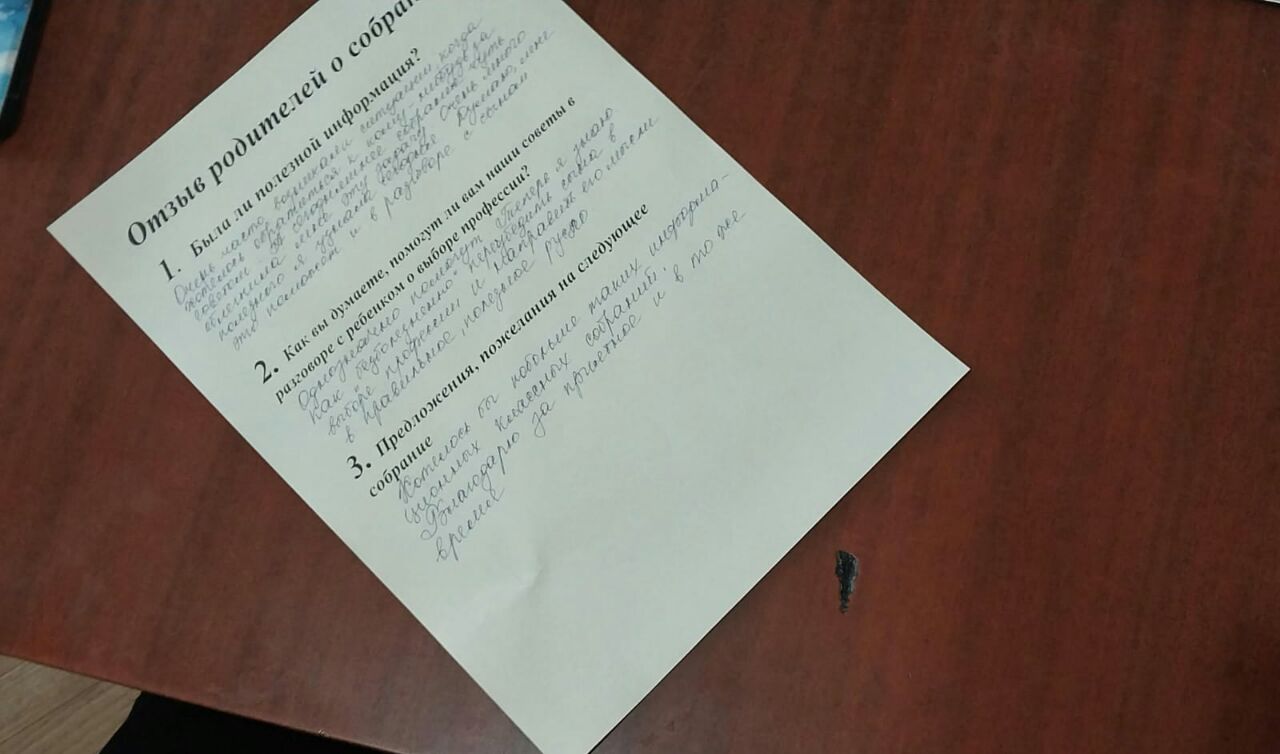 Отзыв родителей о собран
1. Была ли полезной информация?
Очень часто возникали ситуации когда
хотелось обратиться к кому-нибудь за
советом - сегодняшнее собрание чуть
облегчила мне эту задачу. Очень много
полезного я узнала, которые Думаю, мне
это поможет и в разговоре с сыном
2. Как вы думаете, помогут ли вам наши советы в
разговоре с ребенком о выборе профессии?
Однозначно помогут. Теперь я знаю
как "безболезненно" переубедить сына в
выборе профессии и направить его мысли
в правильное, полезное русло
3. Предложения, пожелания на следующее
собрание
Хотелось бы побольше таких информа-
ционных классных собраний.
Благодарю за приятное и в то же
время